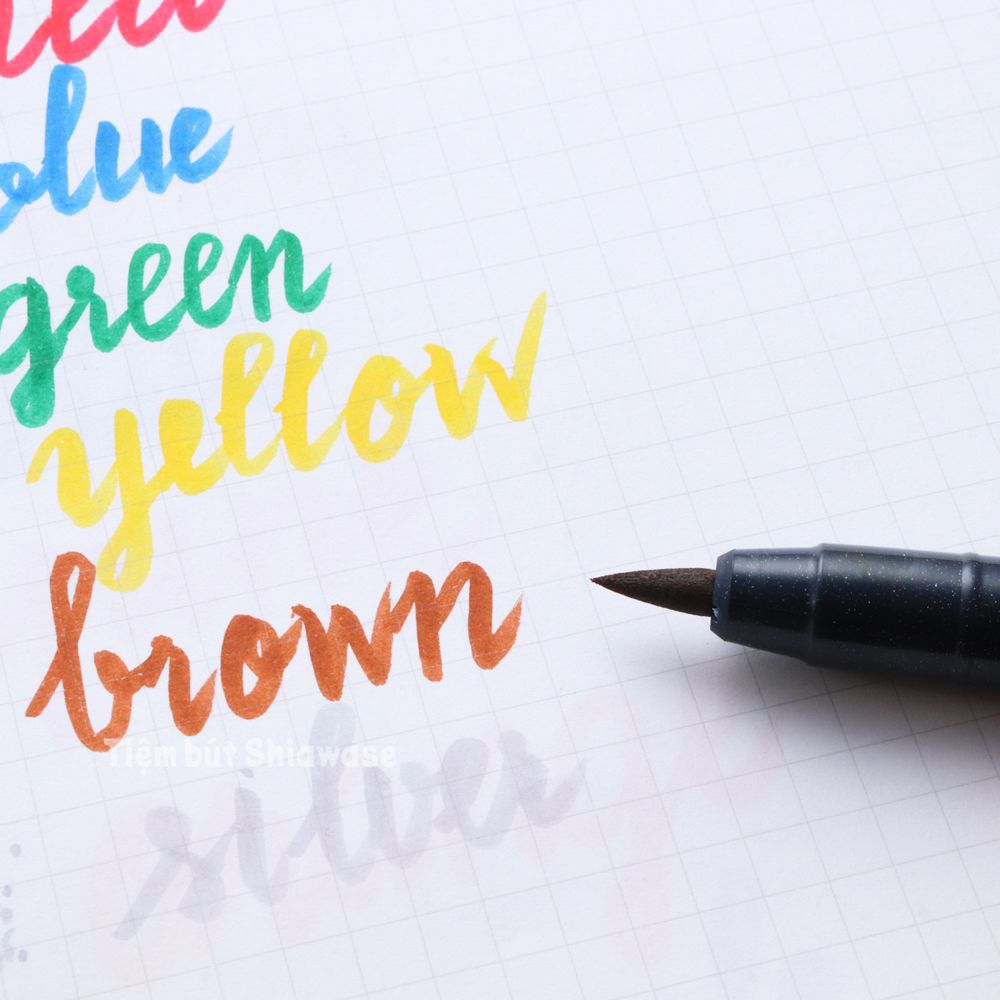 red
blue
green
yellow
brown
Tiệm bút Shiawase
silver